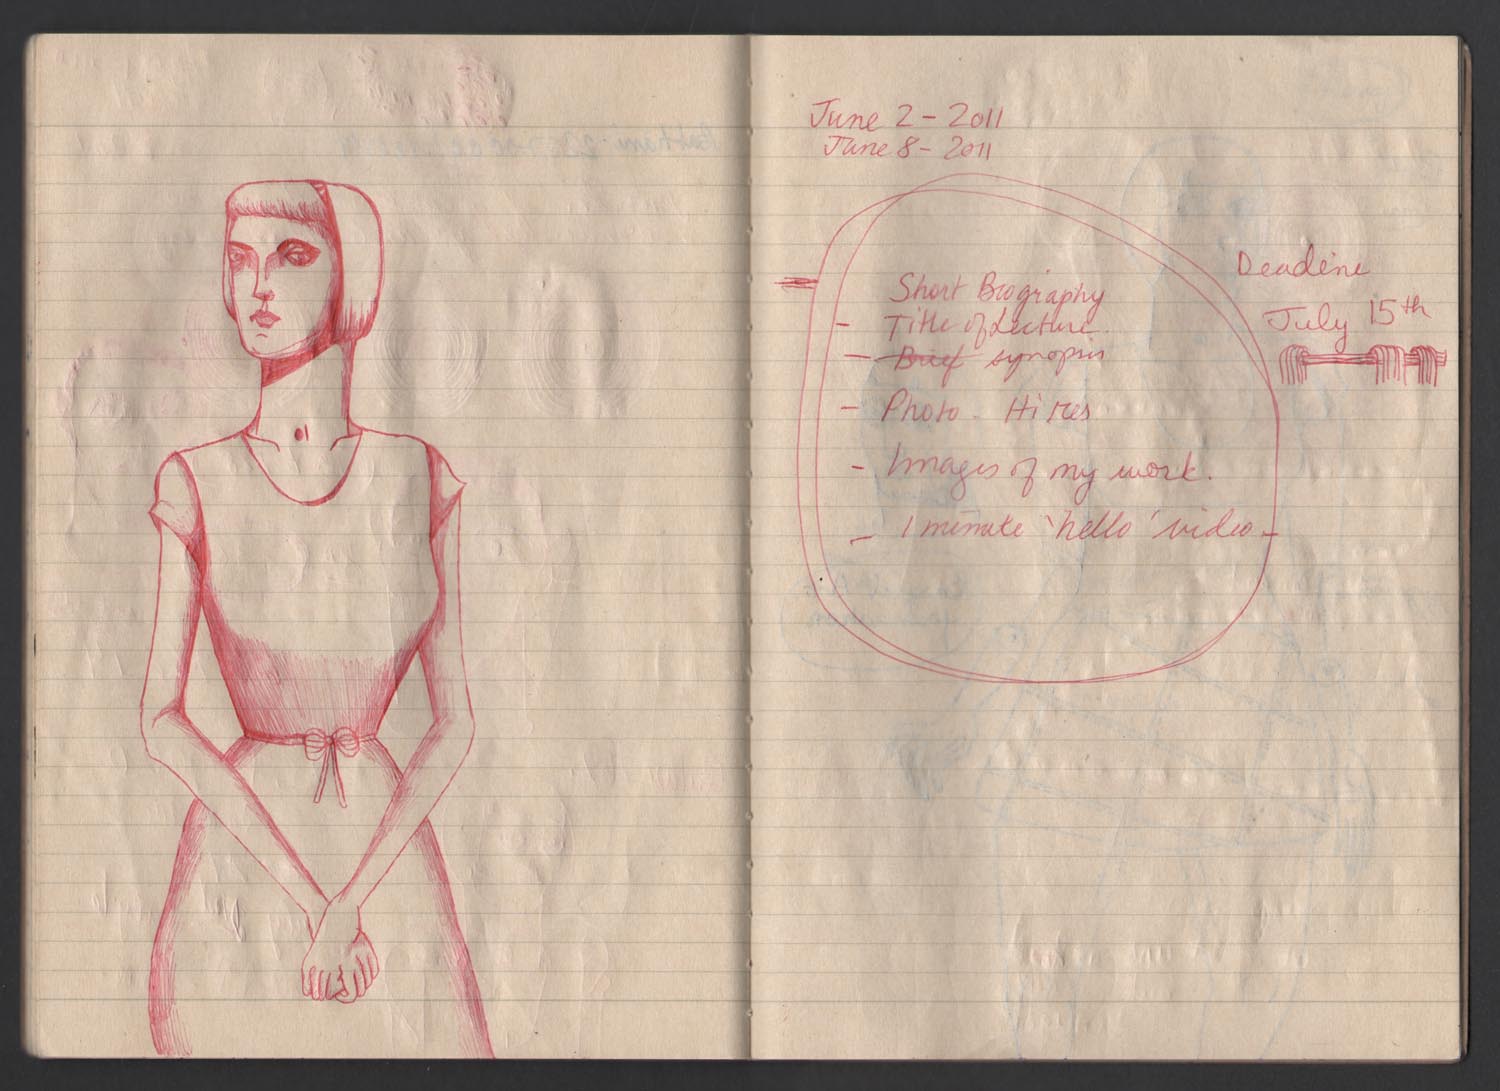 June 2 - 2011
June 8 - 2011
Deadline
July 15th
Short Biography
- Title of Lecture.
- Brief synopsis
- Photo - Hi Res
- Images of my work.
- 1 minute 'hello' video -